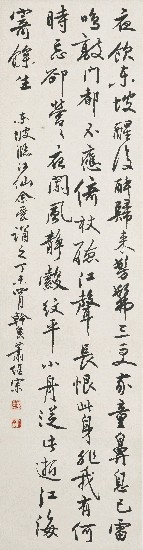 夜飲東坡醒復醉歸來髣髴三更家童鼻息已雷
鳴敲門都不應倚杖聽江聲長恨此身非我有何
時忘卻營々夜闌風靜縠紋平小舟從此逝江海
寄餘生 東坡臨江仙余愛誦之丁未四月幹侯蕭繼宗